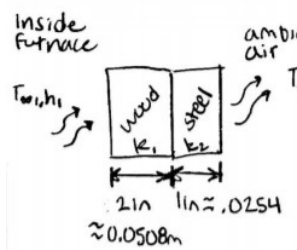 Inside
furnace
ambi
air
T
T∞1,h1
wood
k1
steel
k2
2in
1in≈.0254
≈0.0508m